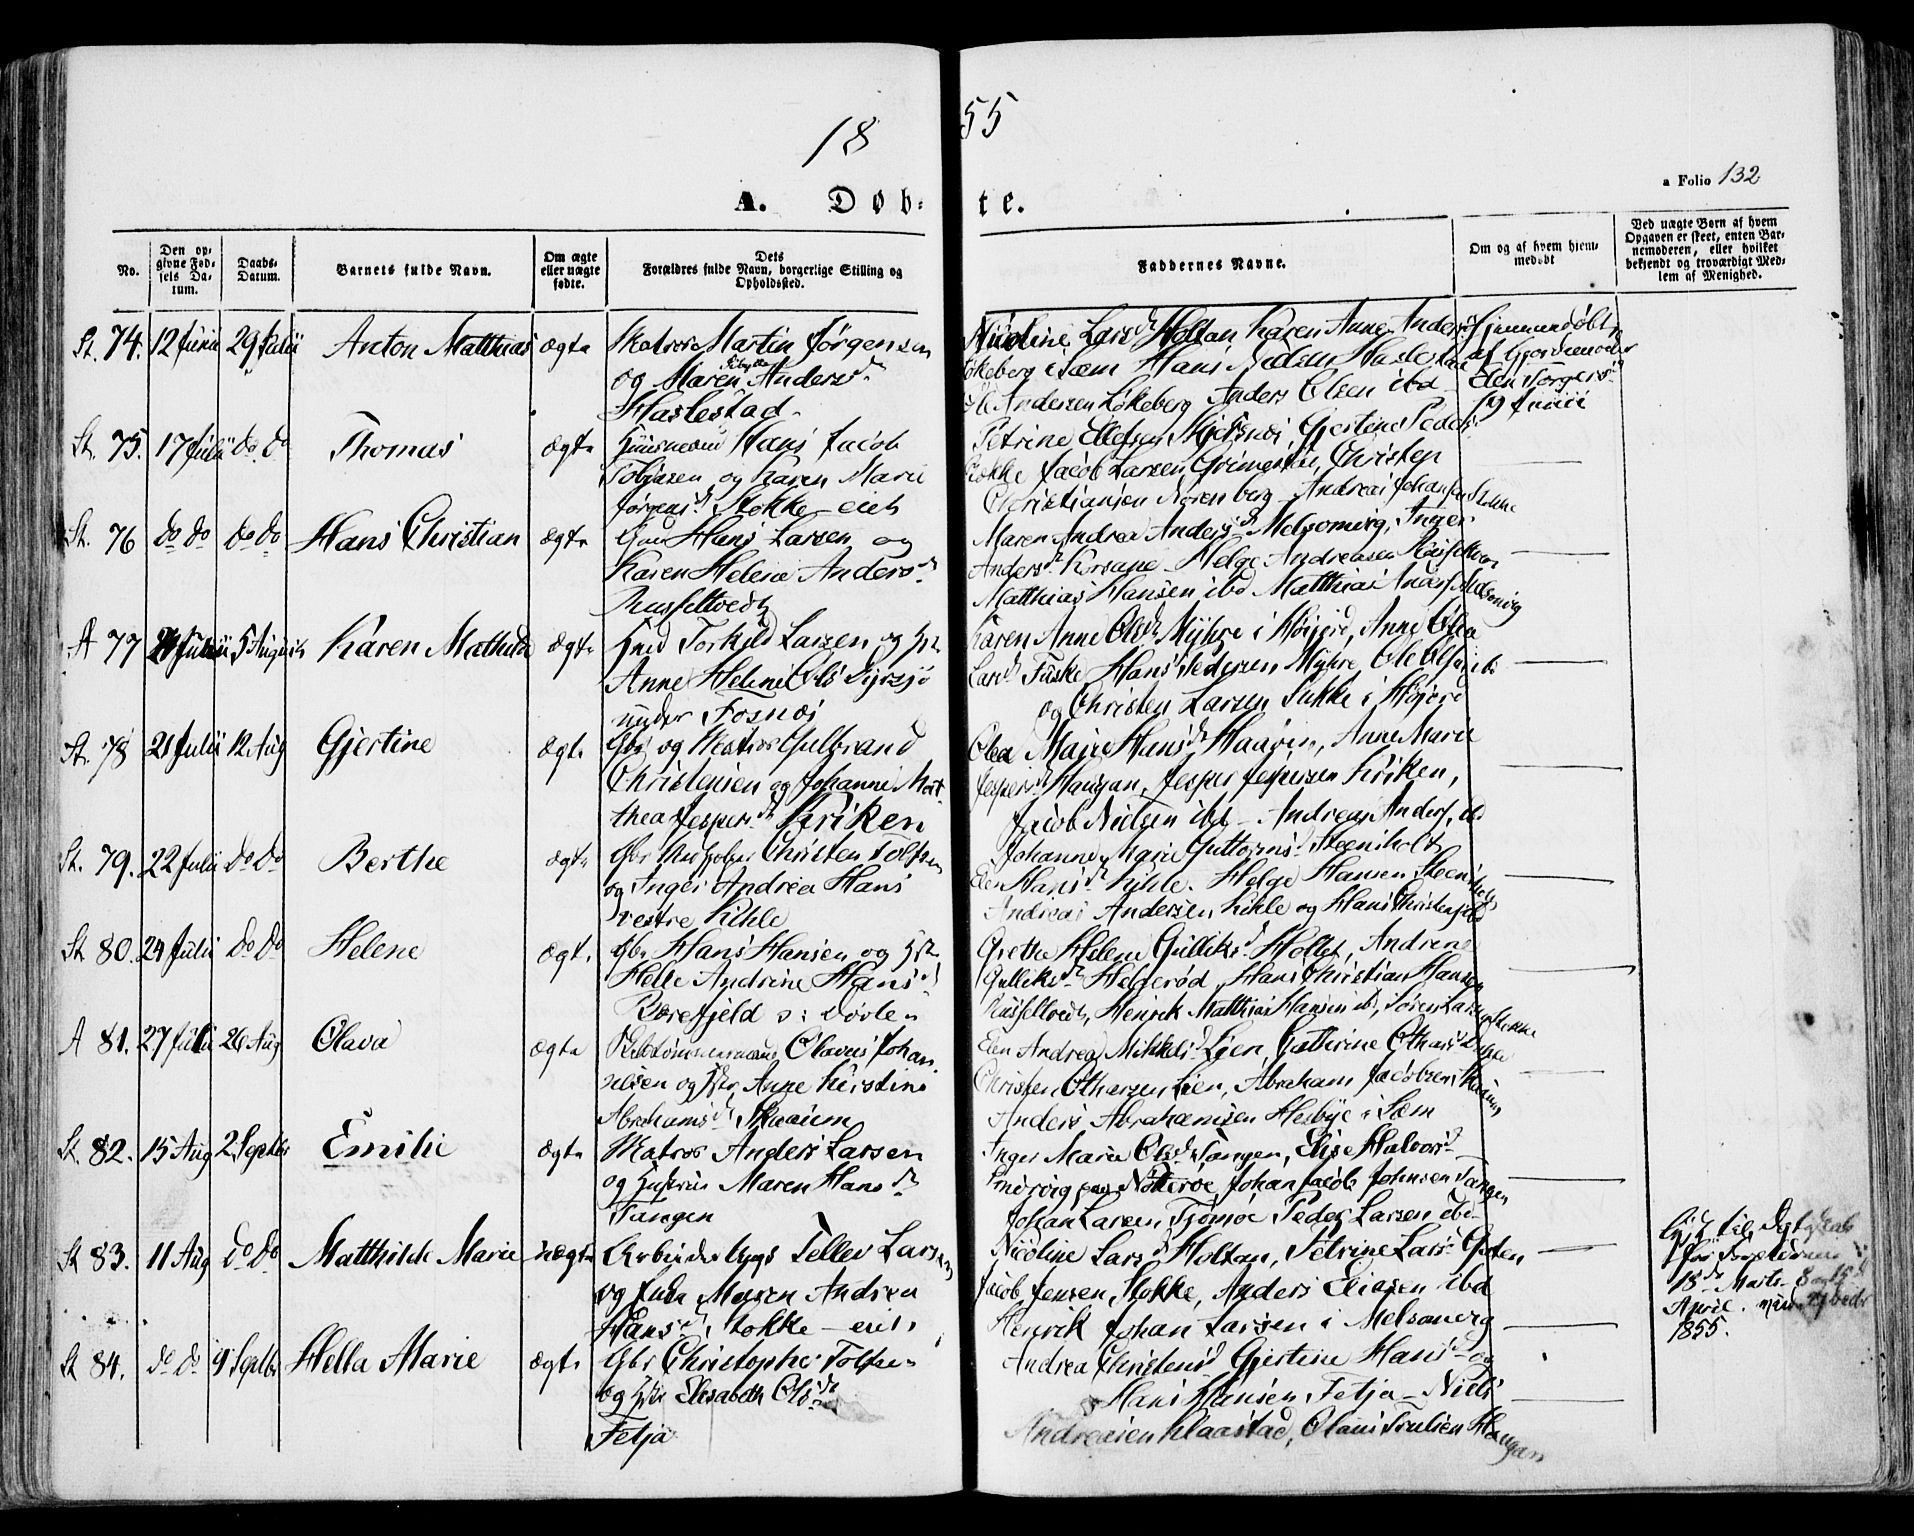 18 55
a Folio 132
A. Døb- te.
No.
Den op-
givne Fød-
sels Da-
tum.
Daabs-
Datum.
Barnets fulde Navn.
Om ægte
eller uægte
fødte.
Dets
Forældres fulde Navn, borgerlige Stilling og
Opholdssted.
Faddernes Navne.
Om og af hvem hjem-
medøbt
Ved uægte Børn af hvem
Opgaven er skeet, enten Bar-
nemoderen, eller hvilket
bekjendt og troværdigt Med-
lem af Menighed.
St. 74. 12 Junii 29 Julii Anton Matthias ægte Matros Martin Jørgensen
og Maren Anders d.
Haslestad
Nicoline Lars d. Holtan Karen Anne Anders
Løkeberg i Sem Hans Nielsen Haslestad
Ole Andersen Løkeberg Anders Olsen ibd
Hjemmedøbt
af Gjordemoder
19 Junii
St. 75. 17 Julii do do Thomas ægte Huusmand Hans Jacob
Tobiasen og Karen Marie
Jørgens d. Stokke eiet
Petrine Ellefsen Gjertine Peders
Stokke Jacob Larsen Grimestad, Christen
Christiansen Norenberg Andreas Johansen Stokke
St. 76 do do do do Hans Christian ægte Gbr Hans Larsen og
Karen Helene Anders d.
Russeltvedt
Maren Andrea Anders d. Melsomvig, Inger
Anders d. Helge Andreasen Russeltved
Matthias Hansen ibd Matthias Anders. Melsomvig
A 77 Julii 5 August Karen Mathilde ægte Torkild Larsen og Hstr
Anne Helene Ols
under Fosnæs
Karen Anne Ols d. Myhre i Høijord, Anne Olea
Lars d. Hans Pedersen Myhre, Ole Olsen ibd
og Christen Larsen i Høijord
St. 78 21 Julii 12 Aug Gjertine ægte Gbr og Matros Gulbrand
Christensen og Johanne Mat-
thea Jespers d. Kriken
Olea Marie Hans d. Haavin, Anne Marie
Jespers d. Haugan, Jesper Jespersen Kriken,
Jacob Nielsen ibd Andreas Anders. ibd
St. 79. 22 Julii do do Berthe ægte Gbr Christen Tolfsen
og Inger Andrea Hans
vestre Kihle
Johanne Marie Guttorms Steensholt
Elen Hans d. Kihle. Helge Hansen Steensholt
Andreas Andersen Kihle og Hans Christensen ibd
St 80. 24 Julii do do Helene ægte Gbr Hans Hansen og Hstr
Helle Andrine Hans d.
Borefjeld
Grethe Helene Gulliks d. Holtet, Andrine
Gulliks d. Helderød, Hans Christian Hansen
Russeltvedt, Henrik Matthias Hansen ibd, Søren Larsen Stokke
A 81. 27 Julii 26 Aug Olava ægte Skibstømmermand Olavus Johan-
nesen og Hstr Anne Kirstine
Abrahams d. Skaaum
Elen Andrea Mikkels d. Lien, Cathrine Othars
Christen Otharsen Lien, Abraham Jacobsen Skaaum
Anders Abrahamsen Hesbye i Sem
St. 82. 15 Aug 2 Septbr Emilie ægte Matros Anders Larsen
og Hustrue Maren Hans d.
Tangen
Inger Maria Ols d. Tangen, Elise Halvors d.
Nøtterøe, Johan Jacob Johnsen Tangen
Johan Larsen Tjømøe Peder Larsen ibd
St 83. 11 Aug do do Matthilde Marie uægte Arbeider Ungk Tellev Larsen
og Maren Andrea
Hans d. Stokke eiet
Nicoline Lars d. Holtan, Petrine Lars
Jacob Jensen Stokke, Anders Eliasen ibd
Henrik Johan Larsen i Melsomvig
18de Marts
April
1855.
St 84. do do 9 Septbr Hella Marie ægte Gbr Christopher Tolfsen
og Hstr Elisabeth Ols d.
Fetja
Andrea Christens d. Gjertine Hans og
Hans Hansen Fetja Niels
Andreasen Klaastad, Olaus Haugan